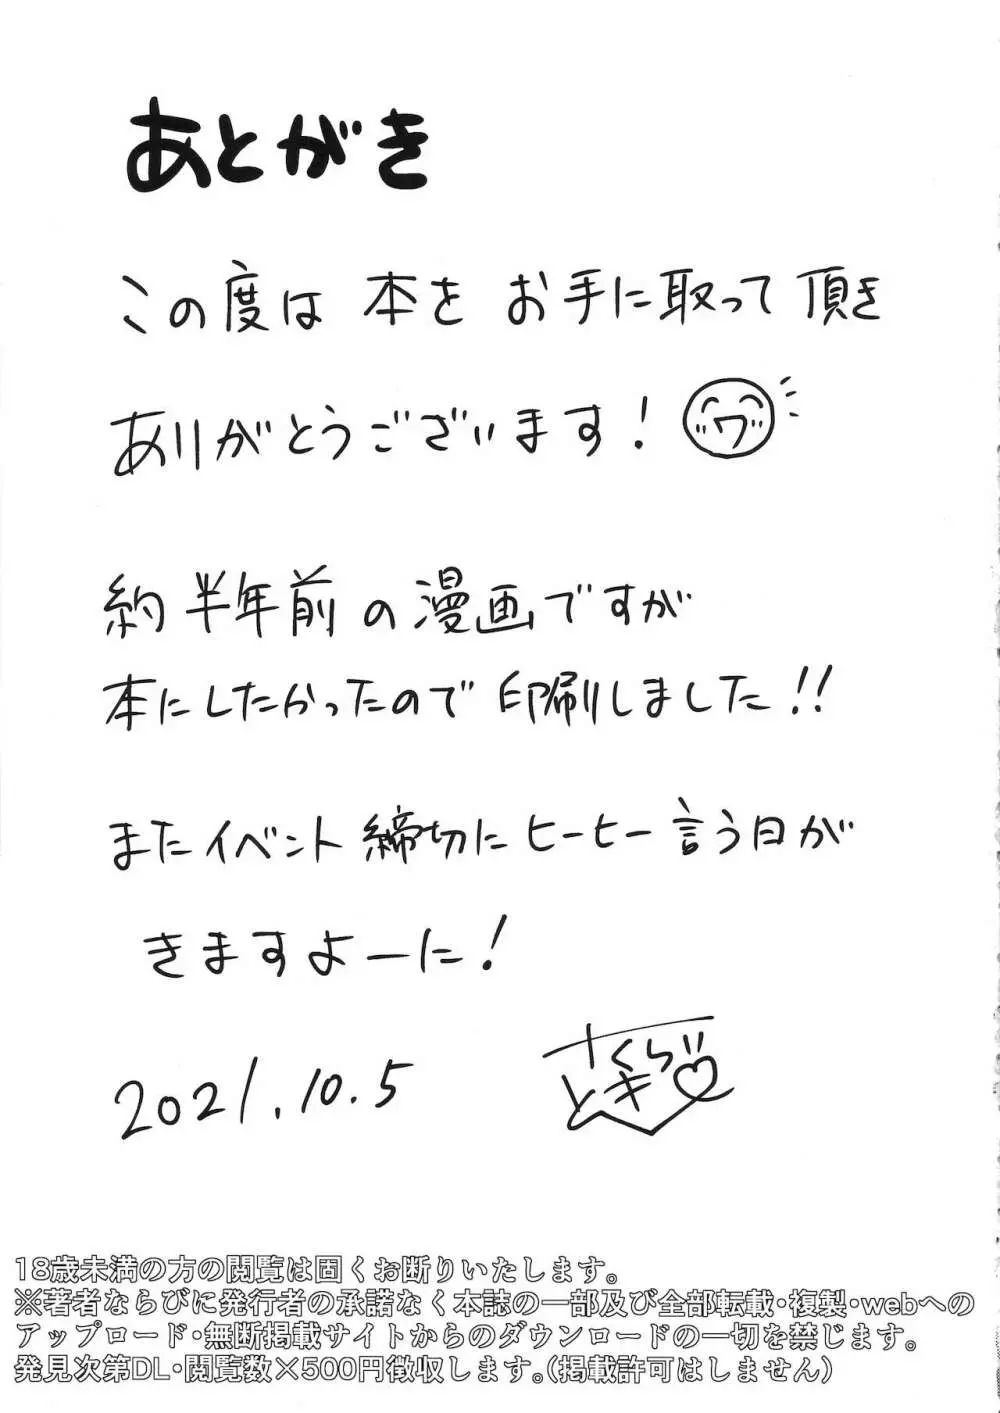 あとがき
この度は 本を お手に取って 頂き
ありがとうございます!
約半年前の漫画ですが
本にしたかったので 印刷しました!!
またイベント 締切にヒーヒー言う日が
きますよーに!
2021.10.5
さくら
とき
18歳未満の方の閲覧は固くお断りいたします。
※著者ならびに発行者の承諾なく本誌の一部及び全部転載・複製・webへの
アップロード・無断掲載サイトからのダウンロードの一切を禁じます。
発見次第DL・閲覧数×500円徴収します。(掲載許可はしません)